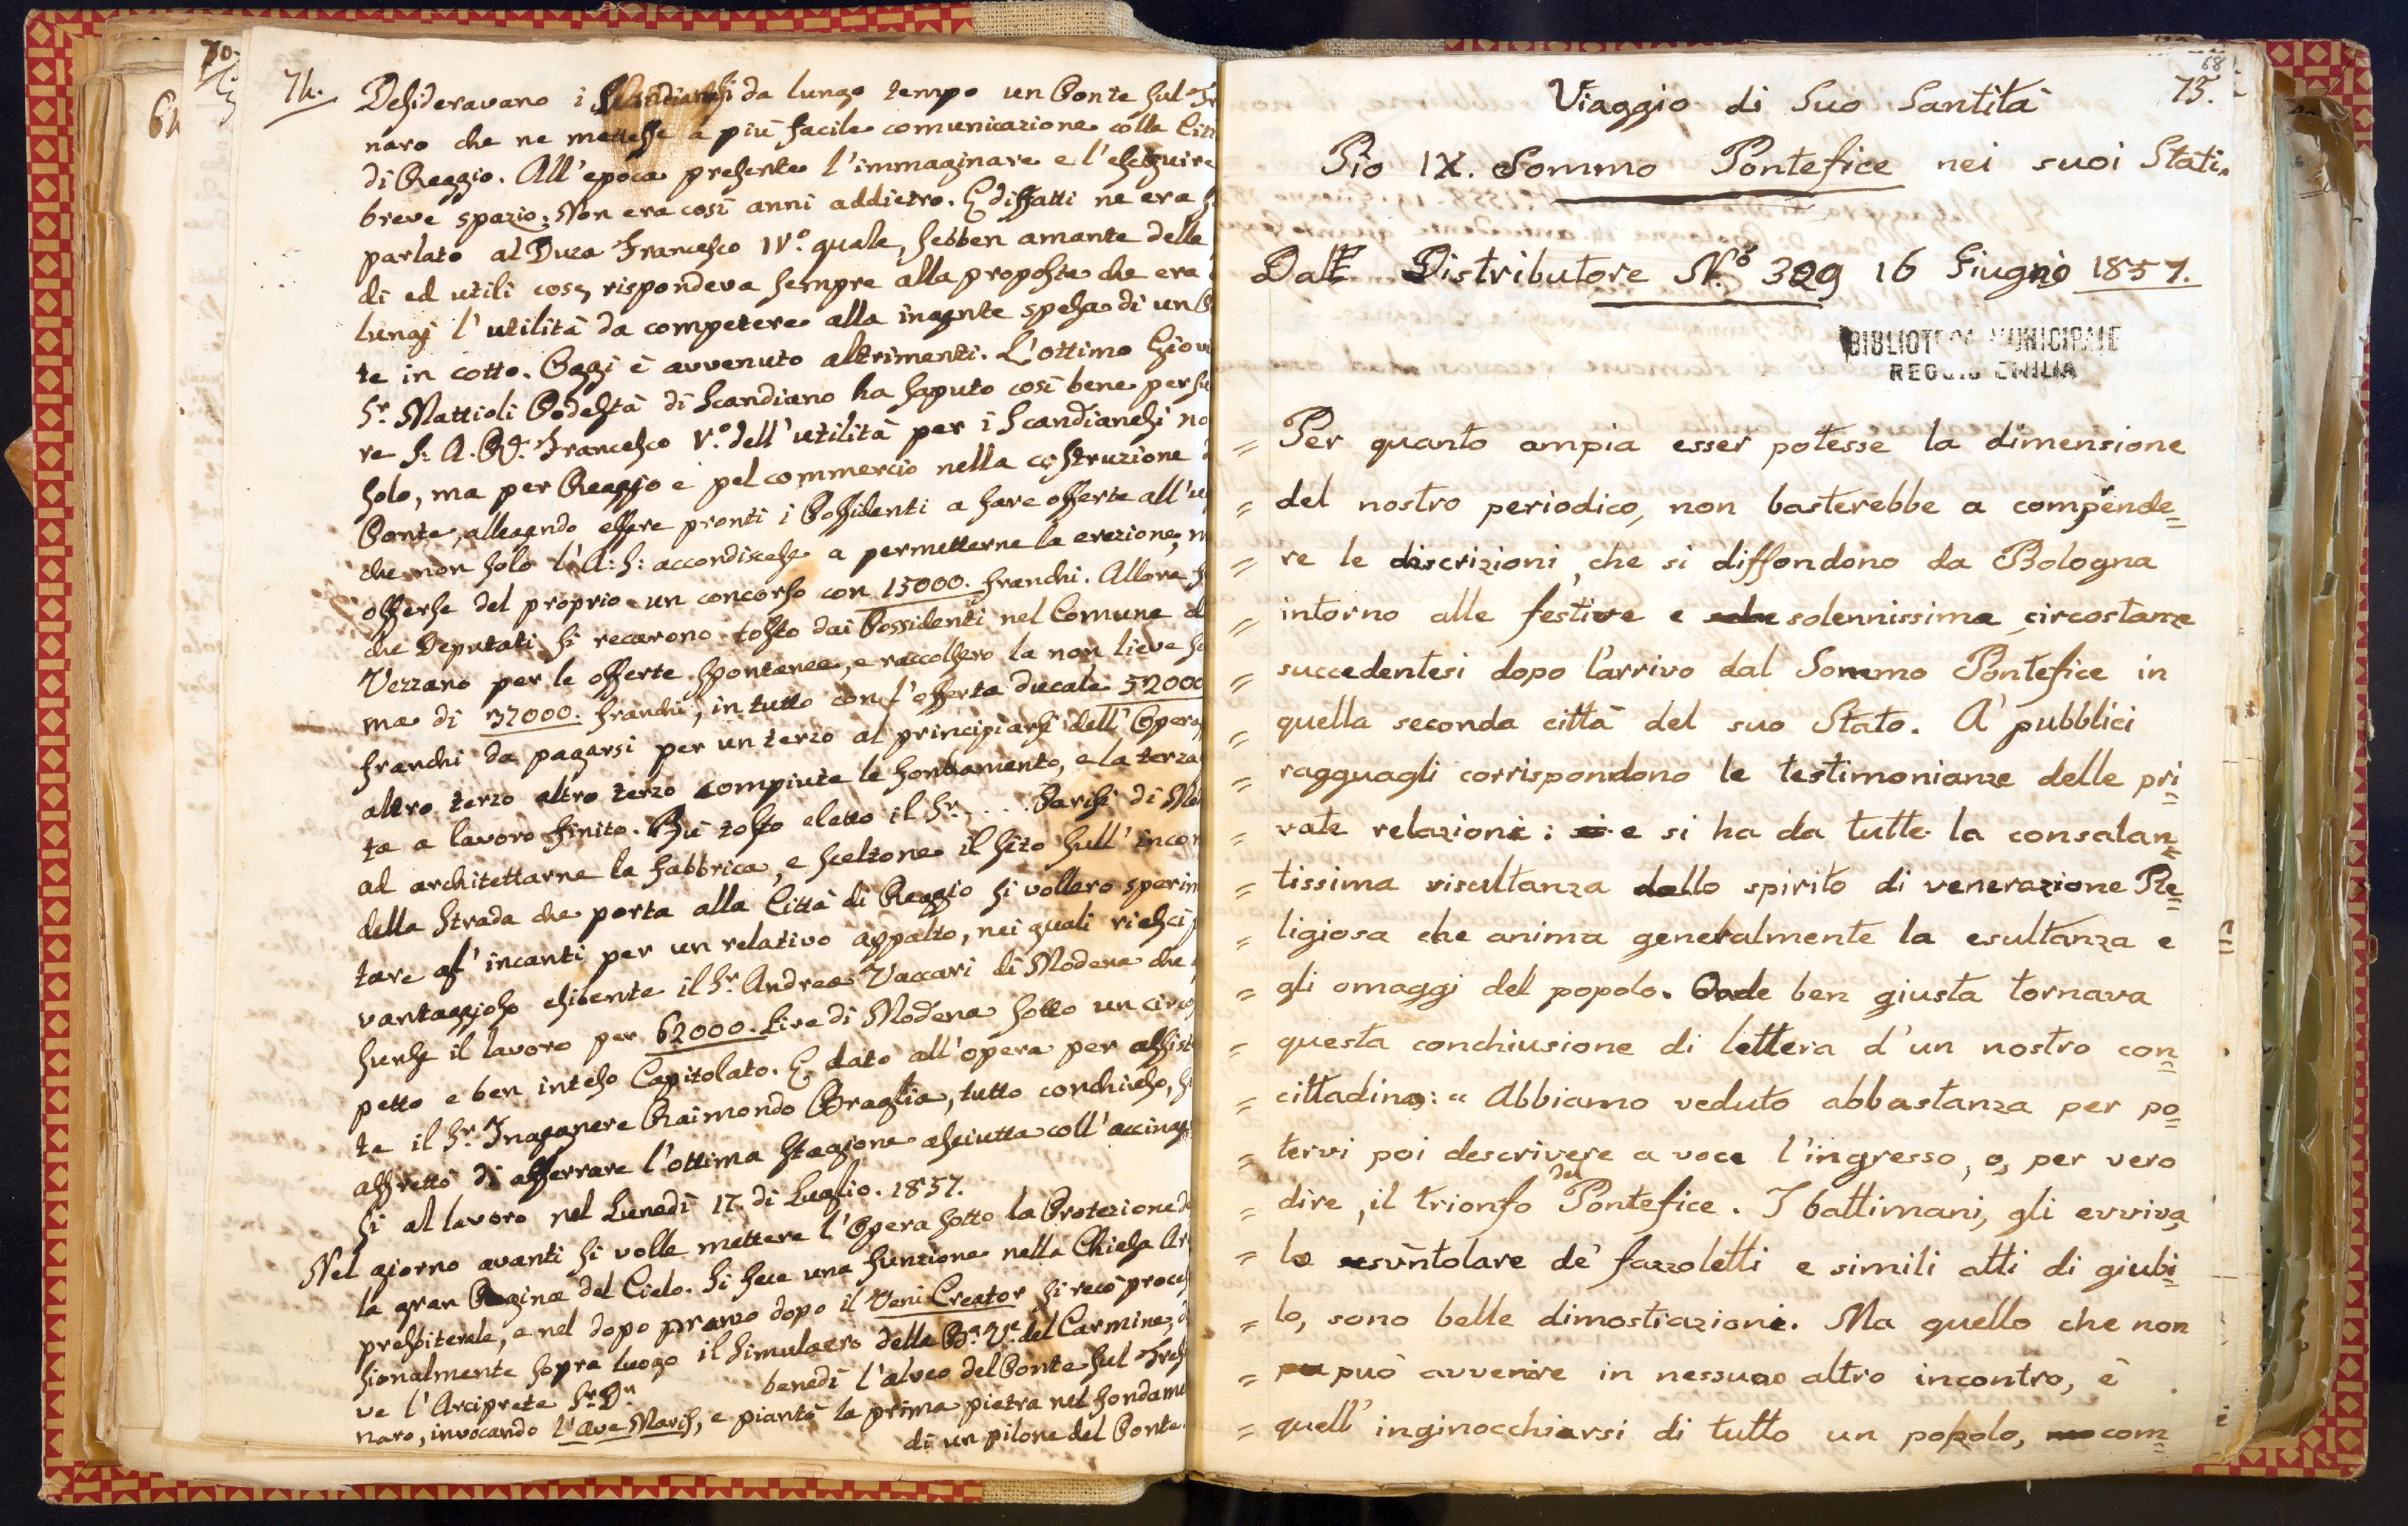 70.
64
74.
Desideravano i Scandianesi da lungo tempo un Ponte sul
naro che ne mettesse a più facile comunicazione colla
di Reggio. All'epoca presente l'immaginare e l'eseguire
breve spazio; Non era così anni addietro. E diffatti ne era
parlato al Duca Francesco IV.º quale, sebben amante delle
di ed utili cose, rispondeva sempre alla proposta che era
lungi l'utilità da competere alla ingente spesa di un
te in cotto. Oggi è avvenuto altrimenti. L'ottimo
Sr. Mattioli Podestà di Scandiano ha saputo così bene
re S: A. R. Francesco V.º dell'utilità per i Scandianesi
solo, ma per Reggio e pel commercio nella costruzione
Ponte, allegando essere pronti i Possidenti a fare offerte
che non solo l'A: S: accondiscese a permetterne la erezione,
offerse del proprio un concorso con 15000. franchi. Allora
che Deputati si recarono tosto dai Possidenti nel Comune
Vezzano per le offerte spontanee, e raccolsero la non lieve
ma di 37000. franchi, in tutto con l'offerta ducale 52000
franchi da pagarsi per un terzo al principiarsi dell'Opera,
altro terzo altro terzo compiute le fondamento, e la terza
ta a lavoro finito. Fu tosto eletto il Sr. . . . Parisi di
ad architettarne la fabbrica, e sceltone il sito sull'
della Strada che porta alla Città di Reggio si vollero
tare gl'incanti per un relativo appalto, nei quali
vantaggioso esibente il Sr. Andrea Vaccari di Modena che
sunse il lavoro per 62000. Lire di Modena sotto un
petto e ben inteso Capitolato. E dato all'opera per
te il Sr. Ingegnere Raimondo Braglia, tutto conchiuso,
affrettò di afferrare l'ottima stagione asciutta coll'
si al lavoro nel Lunedì 17. di Luglio. 1857.
Nel giorno avanti si volle mettere l'Opera sotto la Protezione
la gran Regina del Cielo. Si fece una funzione nella Chiesa
presbiterale, e nel dopo pranzo dopo il Veni Creator si recò
sionalmente sopra luogo il Simulacro della B.a V.e del Carmine,
ve l'Arciprete Sr. Dn benedì l'alveo del Ponte sul
naro, invocando l'Ave Maris, e piantò la prima pietra nel
di un pilone del Ponte.
68
75.
Viaggio di Suo Santità
Pio IX. Sommo Pontefice nei suoi Stati.
Dall Distributore N.º 329 16 Giugno 1857.
BIBLIOTECA MUNICIPALE
REGGIO EMILIA
= Per quanto ampia esser potesse la dimensione
= del nostro periodico, non basterebbe a comprende=
= re le discrizioni, che si diffondono da Bologna
= intorno alle festive e solennissima circostanze
= succedentesi dopo l'arrivo dal Sommo Pontefice in
= quella seconda città del suo Stato. A' pubblici
= ragguagli corrispondono le testimonianze delle pri=
= vate relazioni: e si ha da tutte la consalan=
= tissima risultanza dello spirito di venerazione Re=
= ligiosa che anima generalmente la esultanza e
= gli omaggi del popolo. Onde ben giusta tornava
= questa conchiusione di lettera d'un nostro con=
= cittadino: « Abbiamo veduto abbastanza per po=
= tervi poi descrivere a voce l'ingresso, o, per vero
= dire, il trionfo del Pontefice. I battimani, gli evviva,
= lo svintolare de' fazzoletti e simili atti di giubi=
= lo, sono belle dimostrazioni. Ma quello che non
= può avvenire in nessuno altro incontro, è
= quell'inginocchiarsi di tutto un popolo, com=